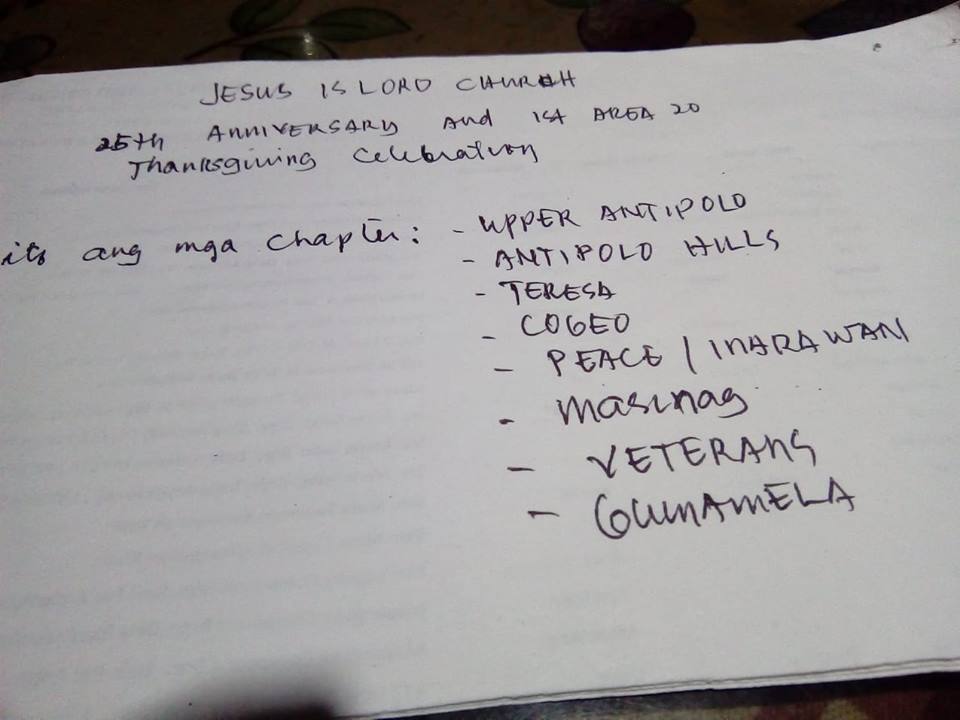 JESUS IS LORD CHURCH
25th ANNIVERSARY and 1st AREA 20
Thanksgiving Celebration
ito ang mga chapter:
- UPPER ANTIPOLO
- ANTIPOLO HILLS
- TERESA
- COGEO
- PEACE / INARAWAN
- Masinag
- VETERANS
- GUMAMELA